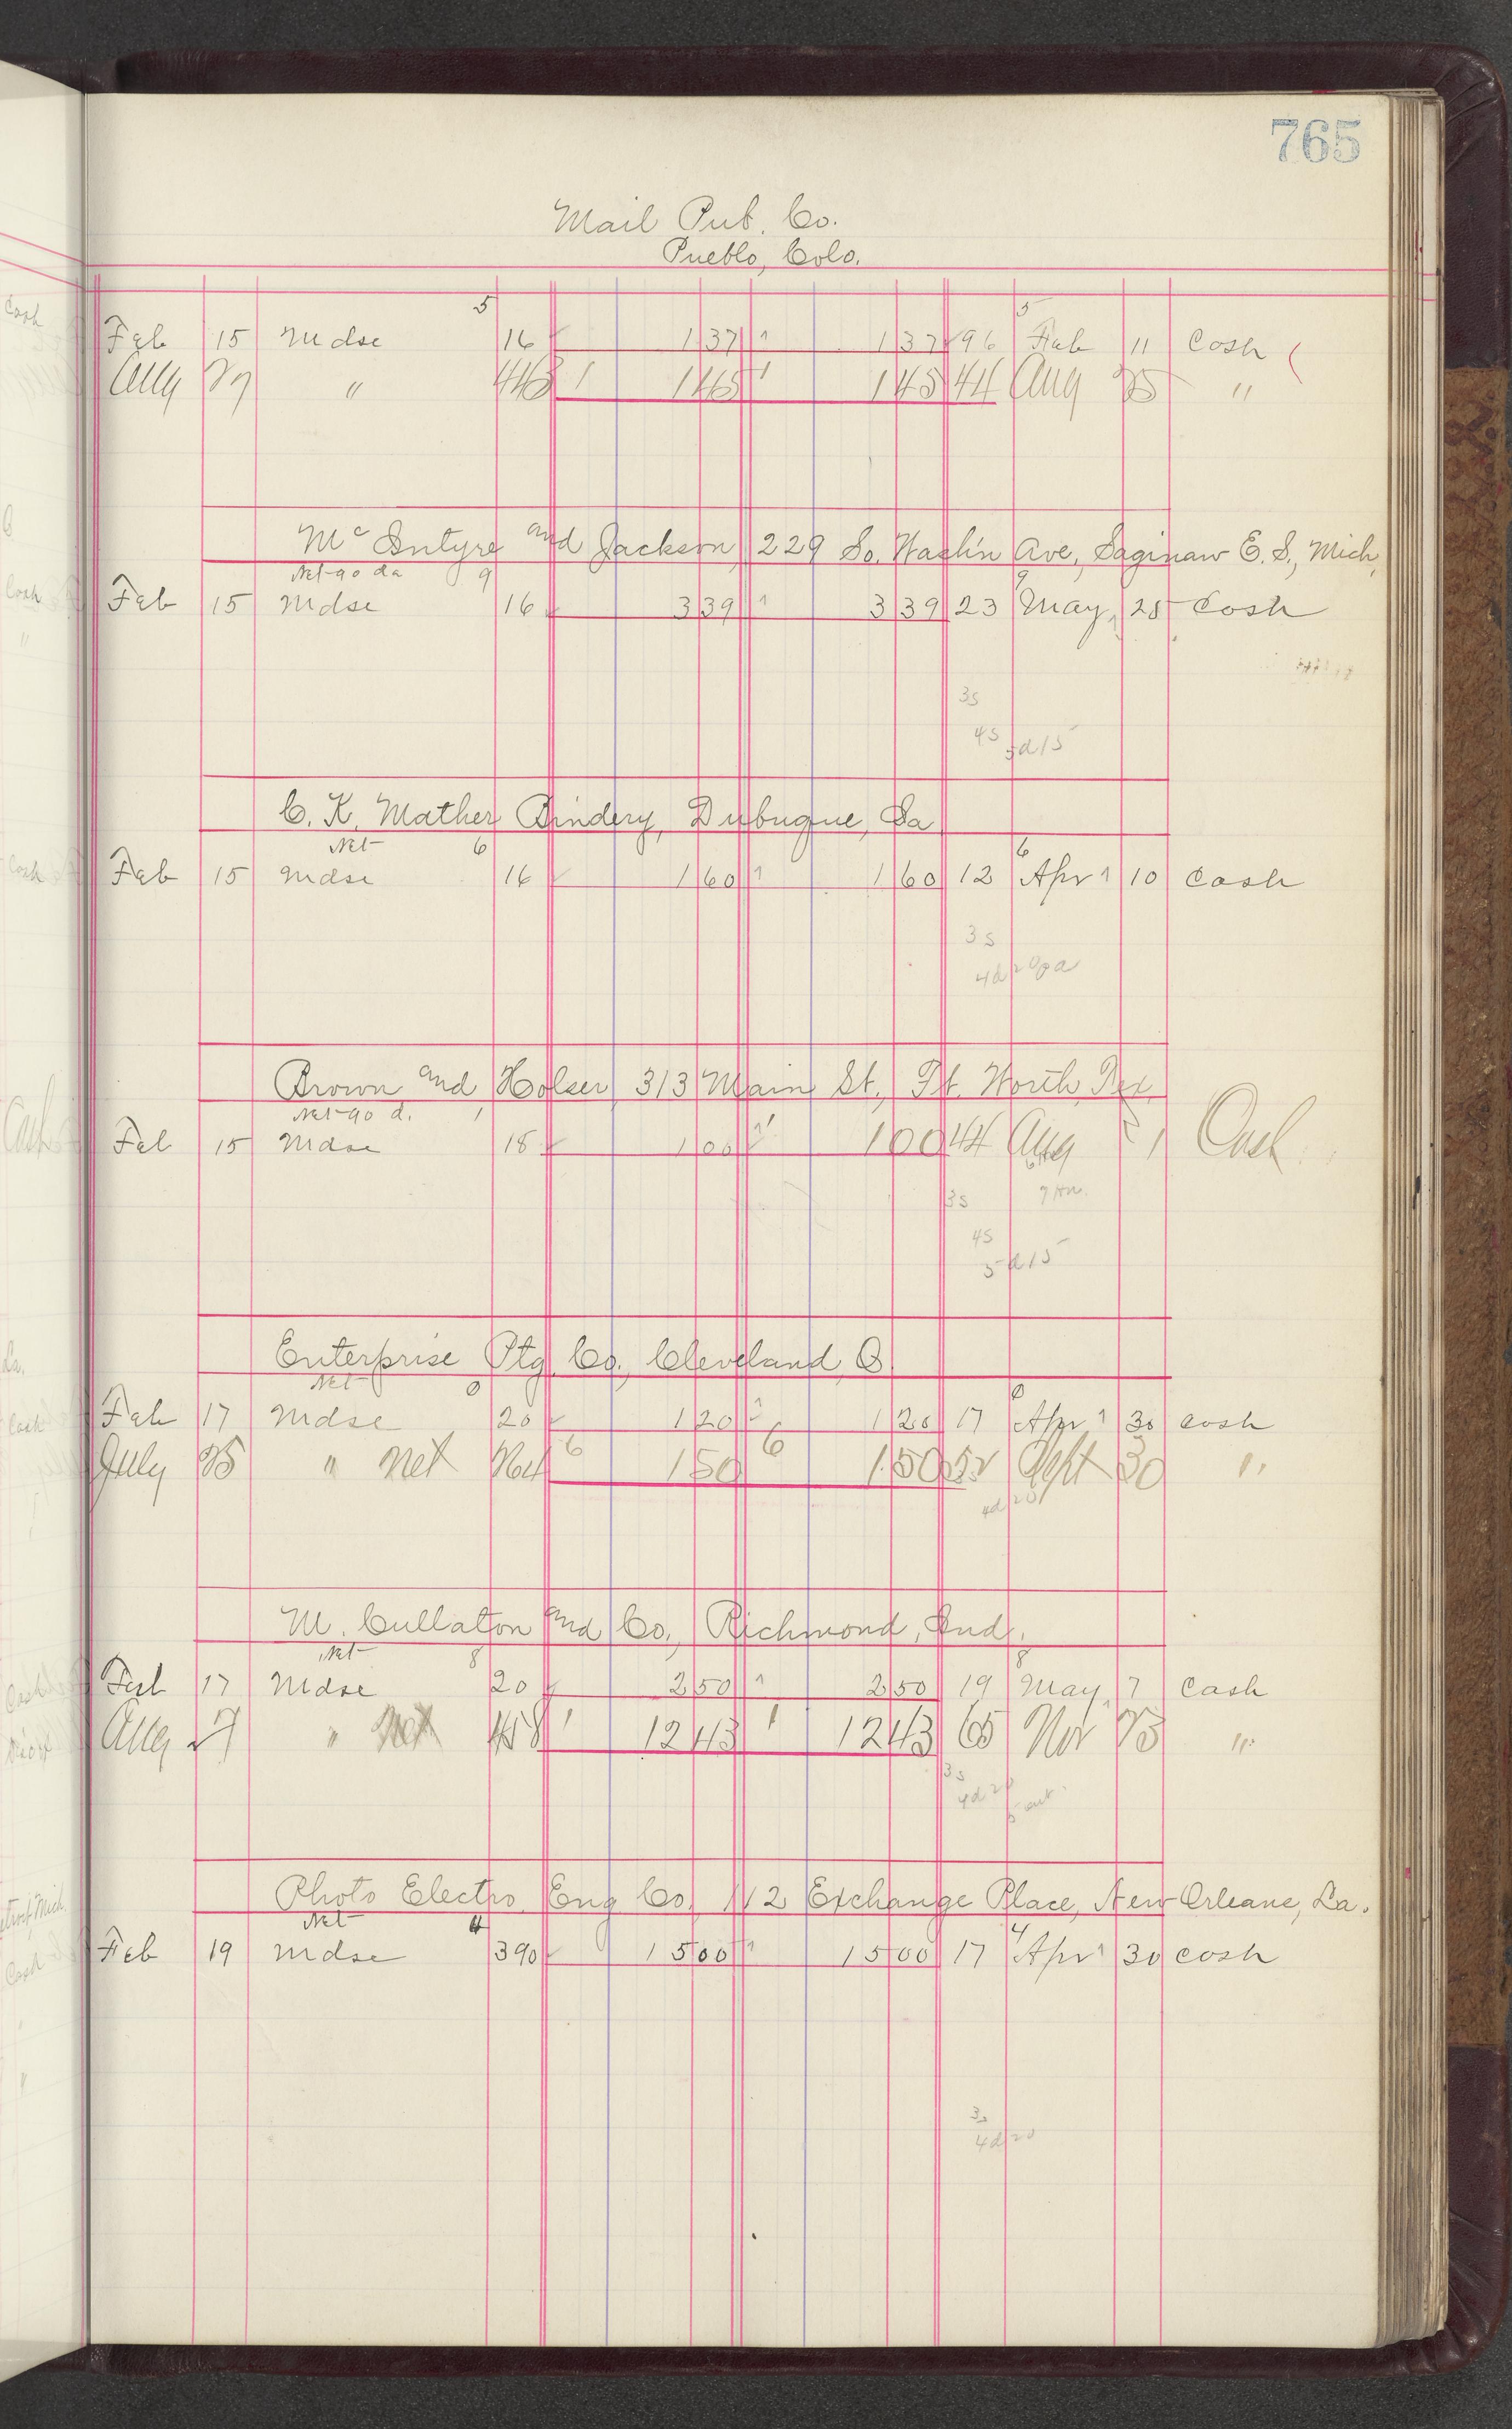 765
Mail Pub. Co.
Pueblo, Colo.
5 5
Feb 15 Mdse 16 1 37 1 1 37 96 Feb 11 Cash
Aug 27 " 448 1 1 45 1 1 45 44 Aug 25 "
Mc Intyre and Jackson, 229 So. Wash'n Ave, Saginaw E. S., Mich.
Net 90 da 9 9
Feb 15 Mdse 16 3 39 1 3 39 23 May 25 Cash
3s
4s
5d15
C. K. Mather Bindery, Dubuque, Ia
Net 6 6
Feb 15 Mdse 16 1 60 1 1 60 12 Apr 1 10 Cash
3s
4d20
Brown and Holser 313 Main St., Ft. Worth, Tex.
Net 90 d. 1
Feb 15 Mdse 18 1 00 1 1 00 44 Aug 21 Cash
3s
4s
5d15
Enterprise Ptg. Co., Cleveland, O.
Net 0 0
Feb 17 Mdse 20 1 20 1 1 20 17 Apr 1 30 Cash
July 25 " Net 6 1 50 6 1 50 52 Sept 30 "
4d20
M. Cullaton and Co., Richmond, Ind.
Net 8 8
Feb 17 Mdse 20 2 50 1 2 50 19 May 7 Cash
Aug 27 " Net 458 1 12 43 1 12 43 65 Nov 23 "
3s
4d20
Photo Electro Eng Co., 112 Exchange Place, New Orleans, La.
Net 4 4
Feb 19 Mdse 390 15 00 1 15 00 17 Apr 1 30 Cash
3s
4d20